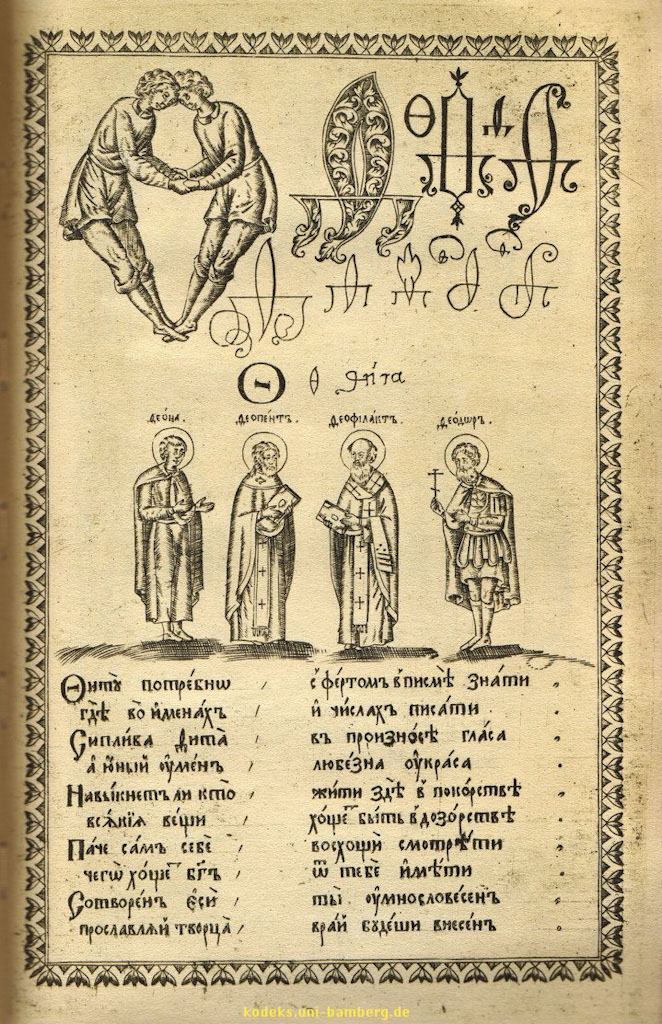 Ѳ ѳ ѳи́та
Ѳео́на.
Ѳеопе́нтъ.
Ѳеофѷла́ктъ.
Ѳео́дѡръ.
Ѳитꙋ̀ потре́бнѡ / с̾ фе́ртомъ в̾ писмѣ̀ зна́ти
гдѣ̀ во и҆мена́хъ / и҆ чи́слахъ писа́ти
Сипли́ва ѳита̀ / въ произно́сѣ гла́са
а҆ ю҆́ный ᲂу҆ме́нъ / любе́зна ᲂу҆кра́са
Навы́кнетъ ли кто̀ / жи́ти здѣ̀ в̾ поко́рствѣ
вся́кїѧ ве́щи / хо́щетъ бы́ть в̾ дозо́рствѣ
Па́че са́мъ себѐ / восхощѝ смотрѣ́ти
чегѡ̀ хо́щетъ бг҃ъ / ѿ тебѐ и҆мѣ́ти
Сотворе́нъ є҆сѝ / ты̀ ᲂу҆мнослове́сенъ
прославлѧ́й творца̀ / в̾ ра́й бꙋ́деши внесе́нъ
kodeks.uni-bamberg.de